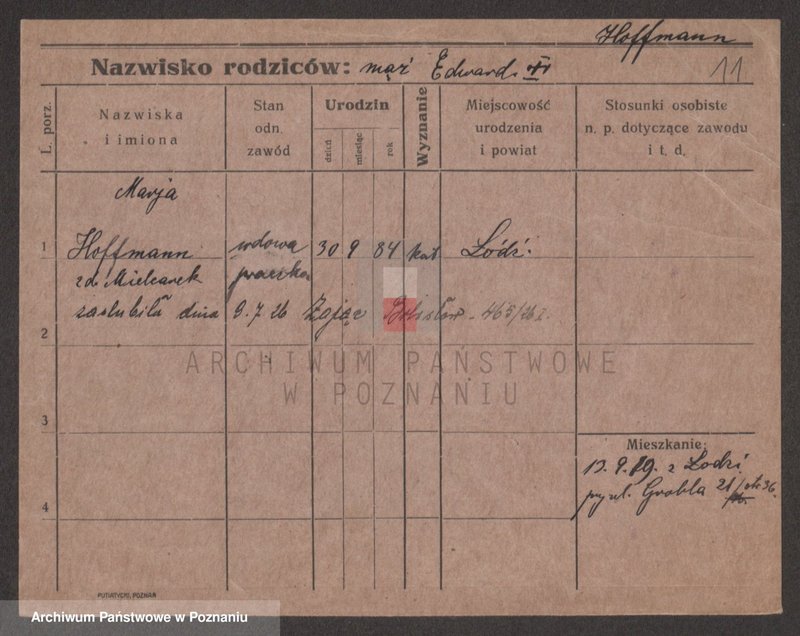 Hoffmann
Nazwisko rodziców: mąż Edward
11
L. porz.
Nazwiska
i imiona
Stan
odn.
zawód
Urodzin
dzień
miesiąc
rok
Wyznanie
Miejscowość
urodzenia
i powiat
Stosunki osobiste
n. p. dotyczące zawodu
i t. d.
Marja
1
Hoffmann wdowa 30 9 84 kat Łódź.
zd. Mielcarek praczka
zaślubiła dnia 9.7.26 Zając 465/26
2
3
4
Mieszkanie:
13.9.19. z Lodzi
Grobla 21
PUTIATYCKI, POZNAŃ
ARCHIWUM PAŃSTWOWE
W POZNANIU
Archiwum Państwowe w Poznaniu